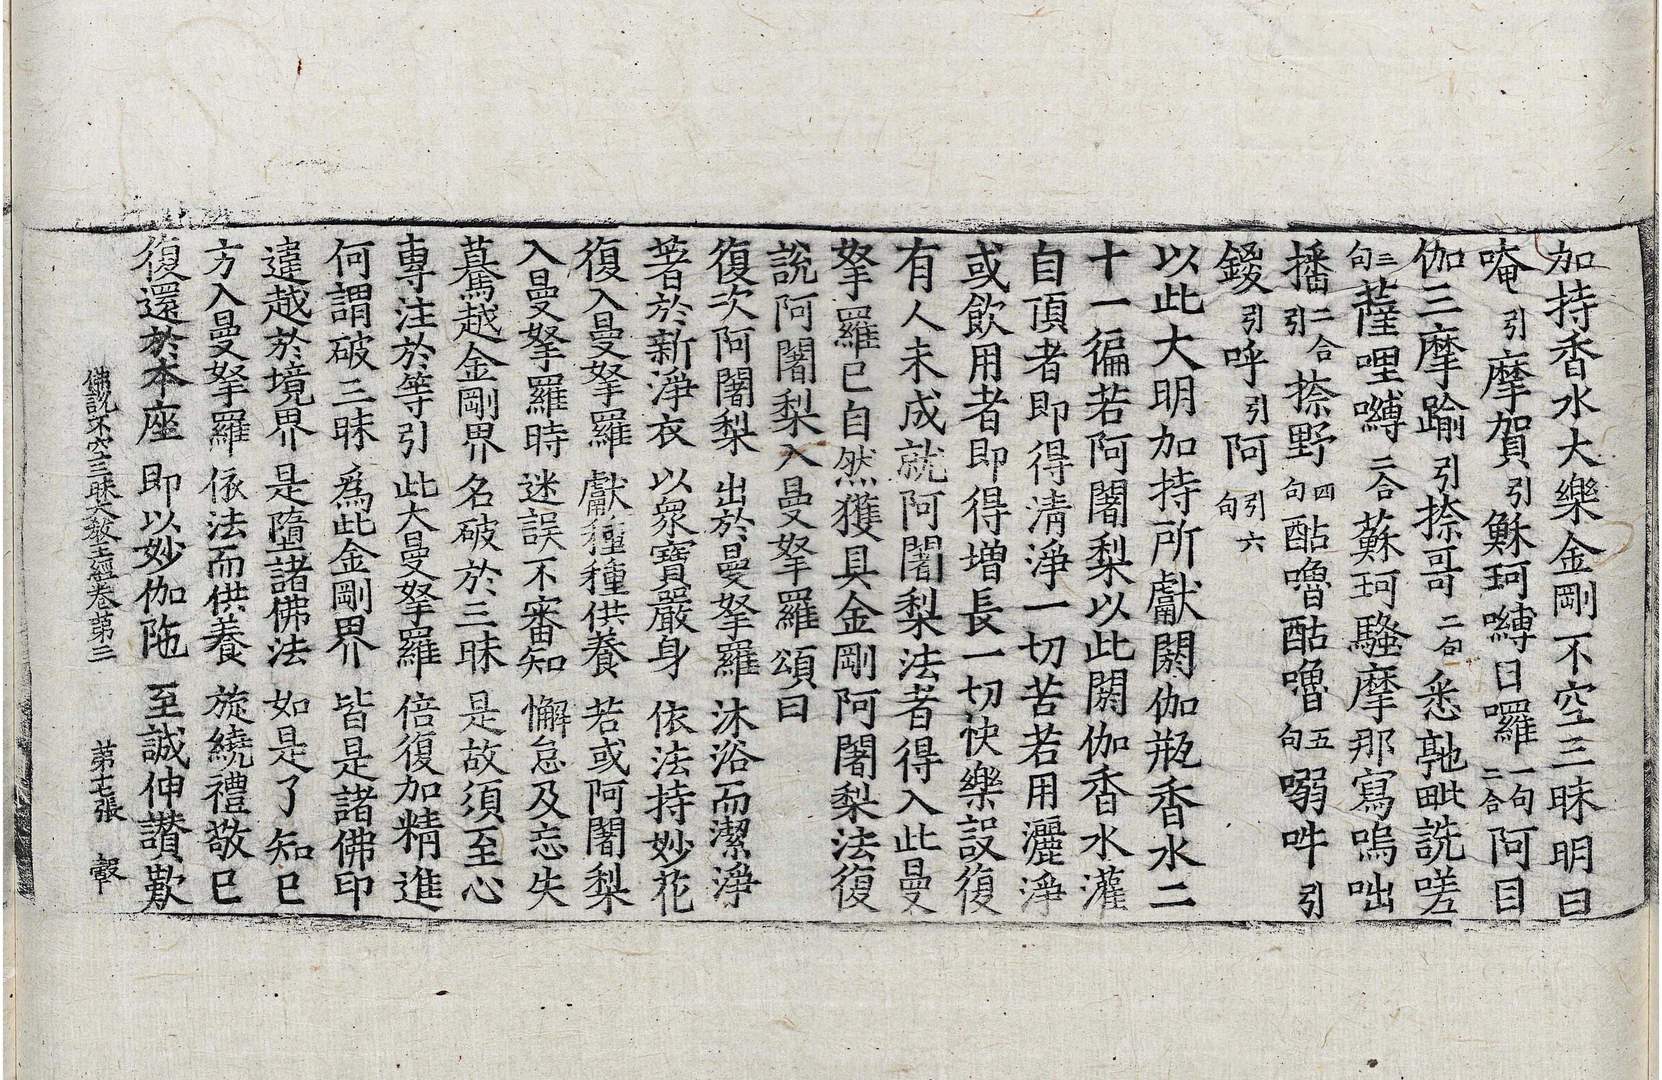 加持香水大樂金剛不空三昧明曰
唵引摩賀引穌珂嚩日囉二合一句阿目
伽三摩踰引捺哥二句悉虢毗詵嗟
三句薩哩嚩二合蘇珂騷摩那寫嗚咄
播二合引捺野四句酤嚕酤嚕五句㗚吽引
鑁引呼引阿引六句
以此大明加持所獻閼伽瓶香水二
十一徧若阿闍梨以此閼伽香水灌
自頂者即得清淨一切苦若用灑淨
或飲用者即得增長一切快樂設復
有人未成就阿闍梨法者得入此曼
拏羅已自然獲具金剛阿闍梨法復
說阿闍梨入曼拏羅頌曰
復次阿闍梨　出於曼拏羅　沐浴而潔淨
著於新淨衣　以衆寶嚴身　依法持妙花
復入曼拏羅　獻種種供養　若或阿闍梨
入曼拏羅時　迷誤不審知　懈怠及忘失
驀越金剛界　名破於三昧　是故須至心
專注於等引　此大曼拏羅　倍復加精進
何謂破三昧　爲此金剛界　皆是諸佛印
違越於境界　是墮諸佛法　如是了知已
方入曼拏羅　依法而供養　旋繞禮敬已
復還於本座　即以妙伽陁　至誠伸讃歎
佛說不空三昧大教王經卷第二　第十七張　罄